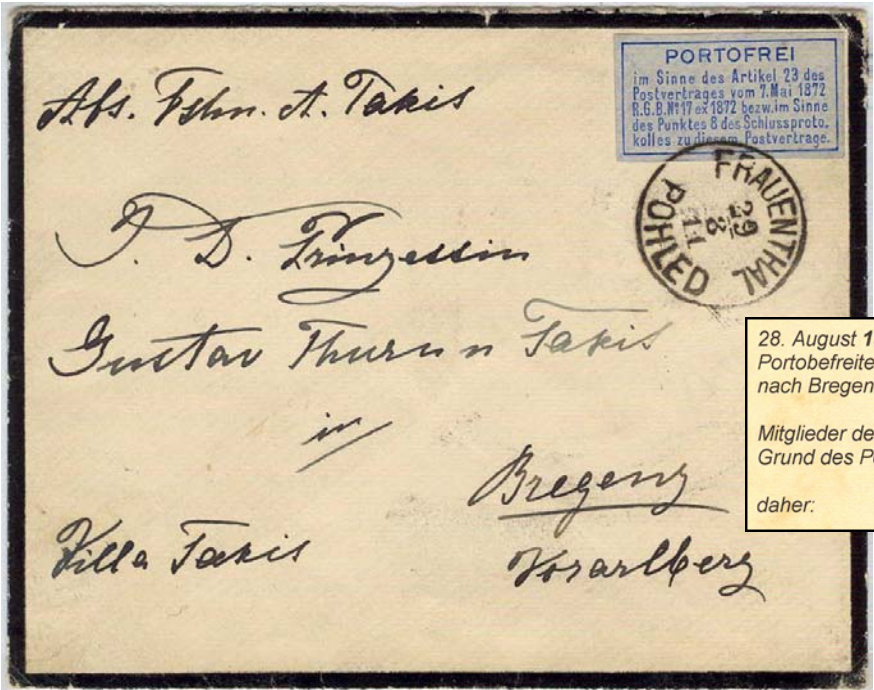 Abs. Fstn. A. Taxis
PORTOFREI
im Sinne des Artikel 23 des
Postvertrages vom 7. Mai 1872
R.G.B. Nº 17 ex 1872 bezw. im Sinne
des Punktes 8 des Schlussproto.
kolles zu diesem Postvertrage.
FRAUENTHAL
29
8
11
POHLED
I. D. Prinzessin
Gustav Thurn u Taxis
in
Bregenz
Villa Taxis
Vorarlberg
28. August 1
Portobefreite
nach Bregen
Mitglieder de
Grund des P
daher: